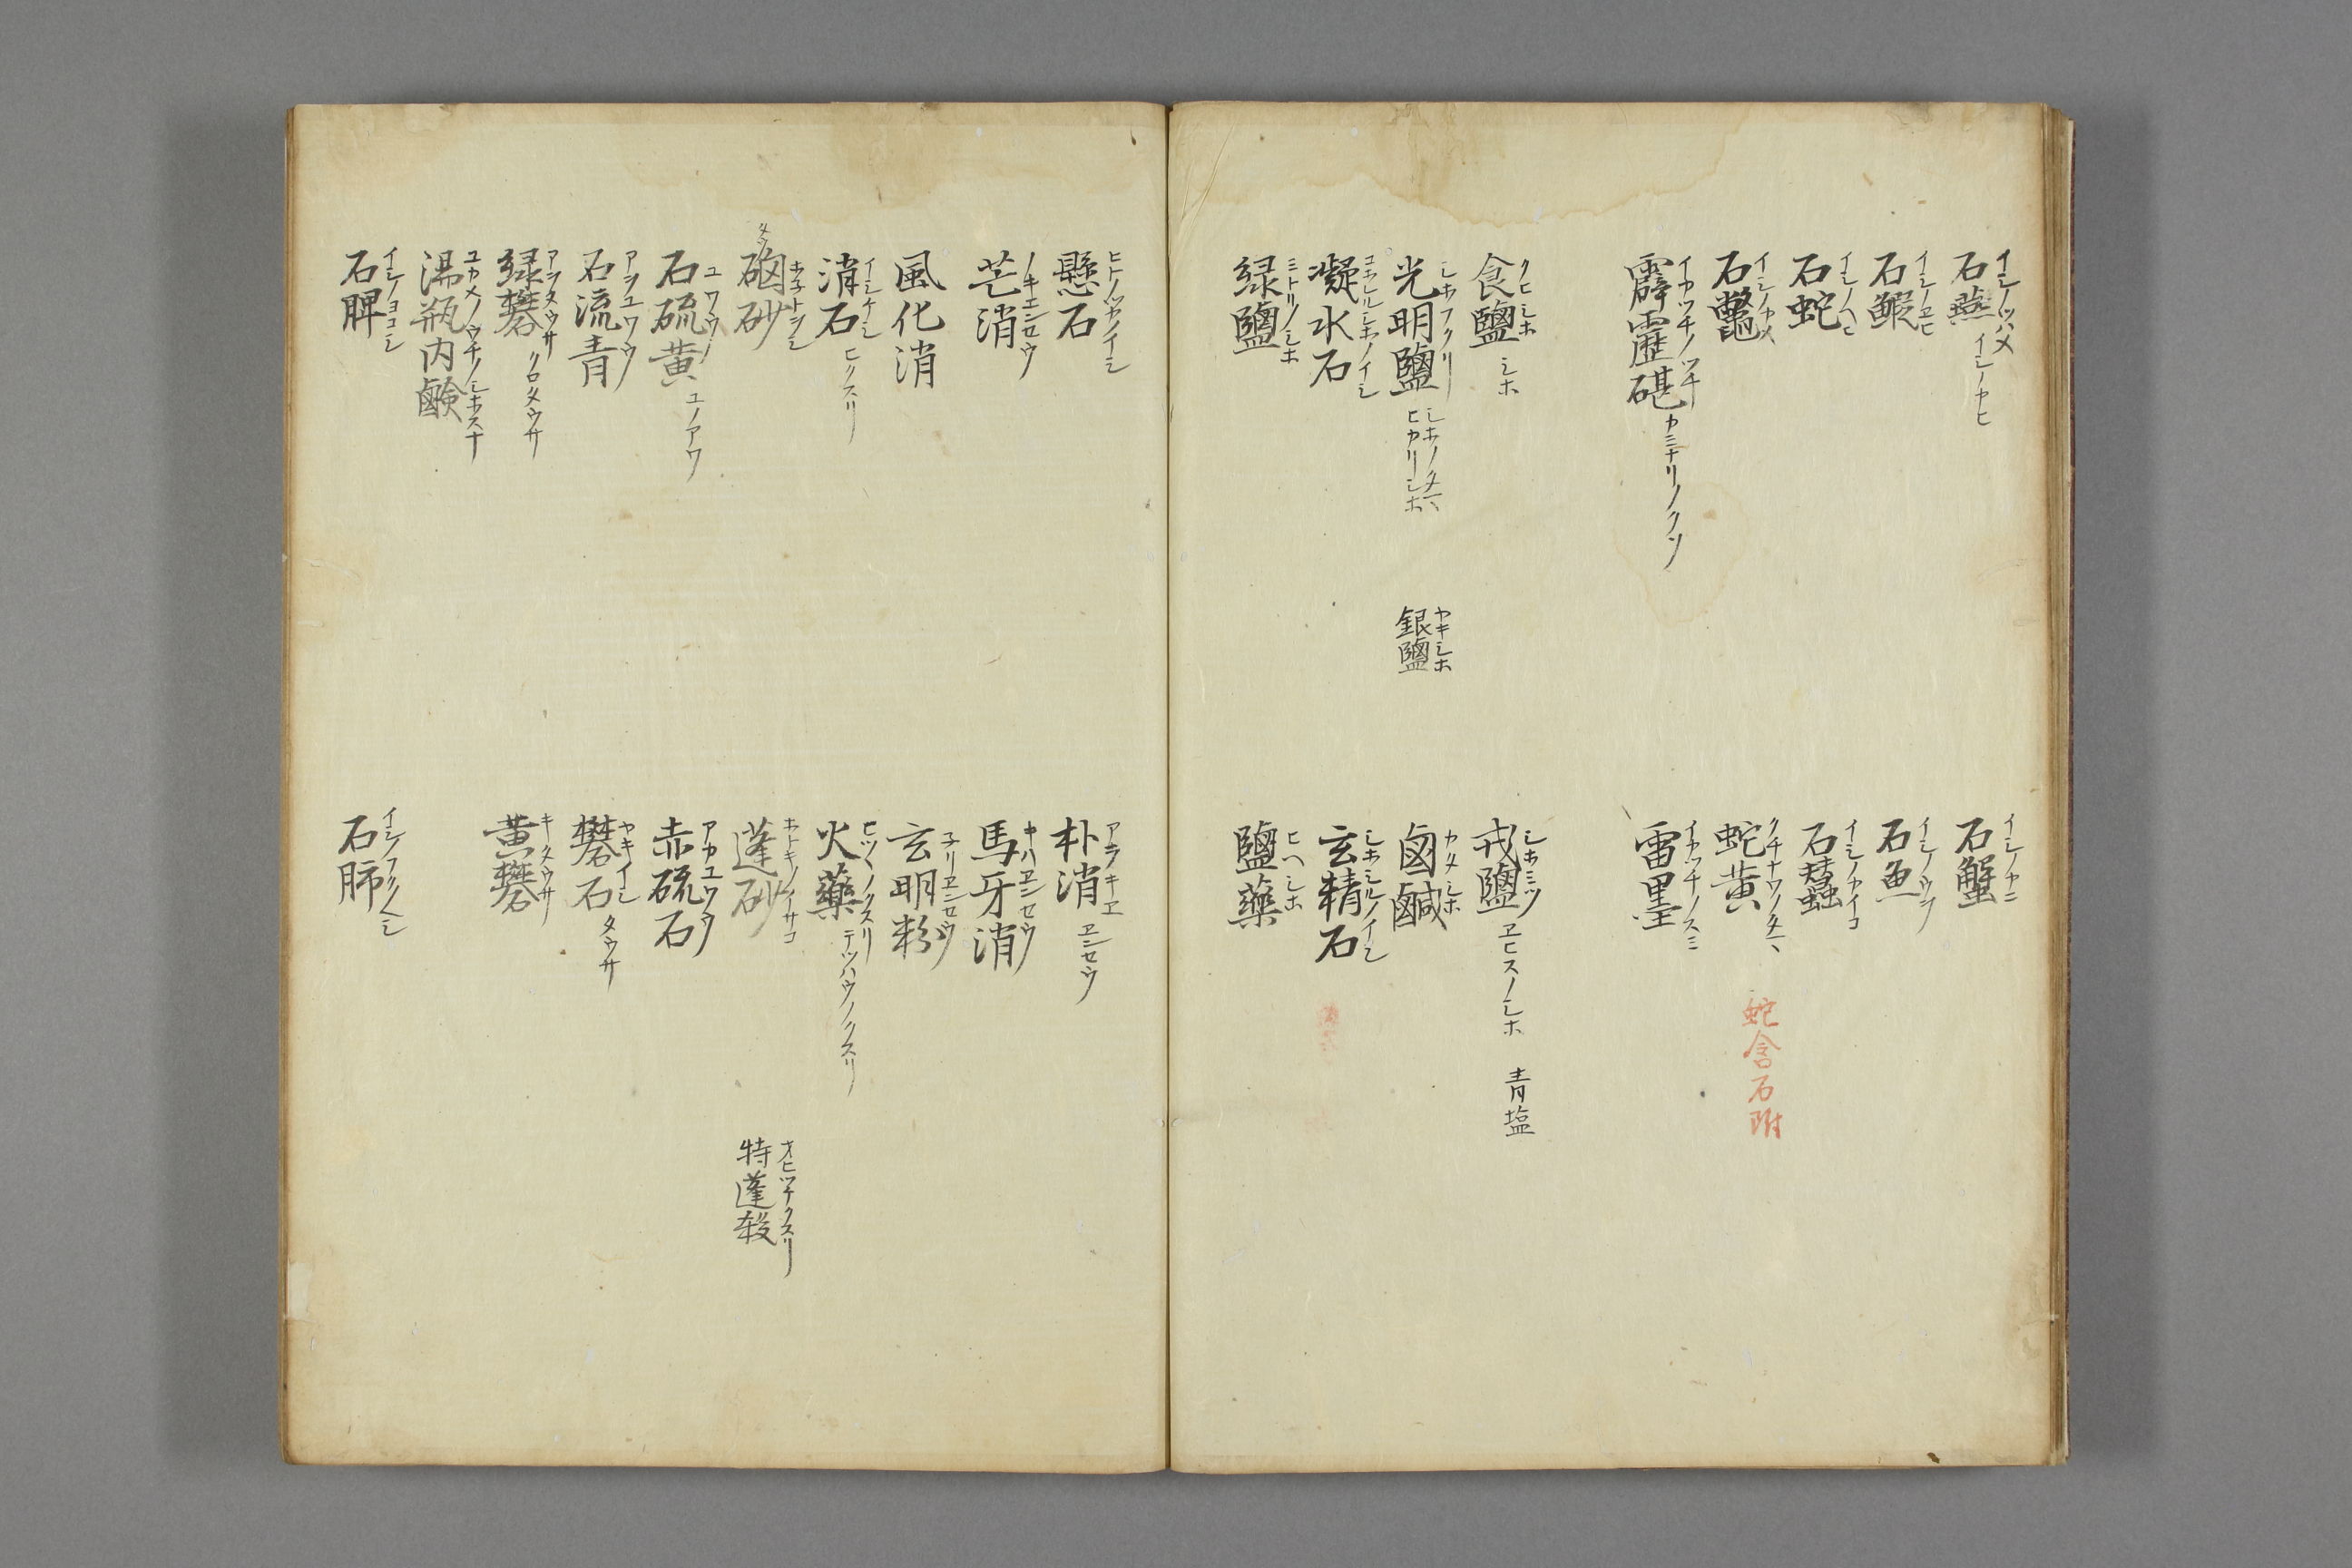 石燕 イシノツハメ イシノカヒ
石蟹 イシノカニ
石鰕 イシノヱヒ
石魚 イシノウヲ
石蛇 イシノヘヒ
石蠶 イシノカイコ
石鼈 イシノカメ
蛇黄 クチナワノタマ 蛇含石附
霹靂碪 イカツチノツチ カミナリノクソ
雷墨 イカツチノスミ
食鹽 クヒシホ シホ
戎鹽 シホミツ ヱヒスノシホ 青塩
光明鹽 シホフクリ シホノタマ ヒカリシホ
銀鹽 ヤキシホ
鹵鹹 カタシホ
凝水石 コホルシホノイシ
玄精石 シホシルノイシ
緑鹽 ミトリノシホ
鹽藥 ヒヘシホ
懸石 ヒトノツカノイシ
朴消 アラキヱ ヱンセウ
芒消 ノキエンセウ
馬牙消 キハヱンセウ
風化消
玄明粉 子リヱンセウ
消石 イシケシ ヒクスリ
火藥 ヒツノクスリ テツハウノクスリ
硇砂
蓬砂 ホトキノイサコ
特蓬殺 オヒツチクスリ
石硫黄 ユワウ ユノアワ
赤硫石 アカユワウ
石流青 アヲユワウ
礬石 ヤキイシ タウサ
緑礬 アヲタウサ クロタウサ
黄礬 キタウサ
湯瓶内鹸 ユカメノウチノシホスナ
石脾 イシノヨコシ
石肺 イシノフクフクシ